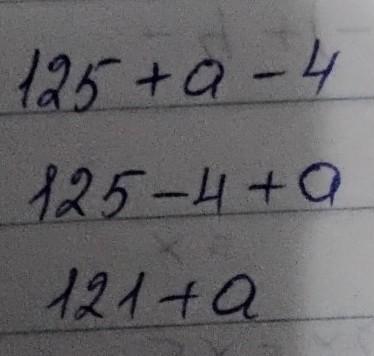 125 + a - 4
125 - 4 + a
121 + a